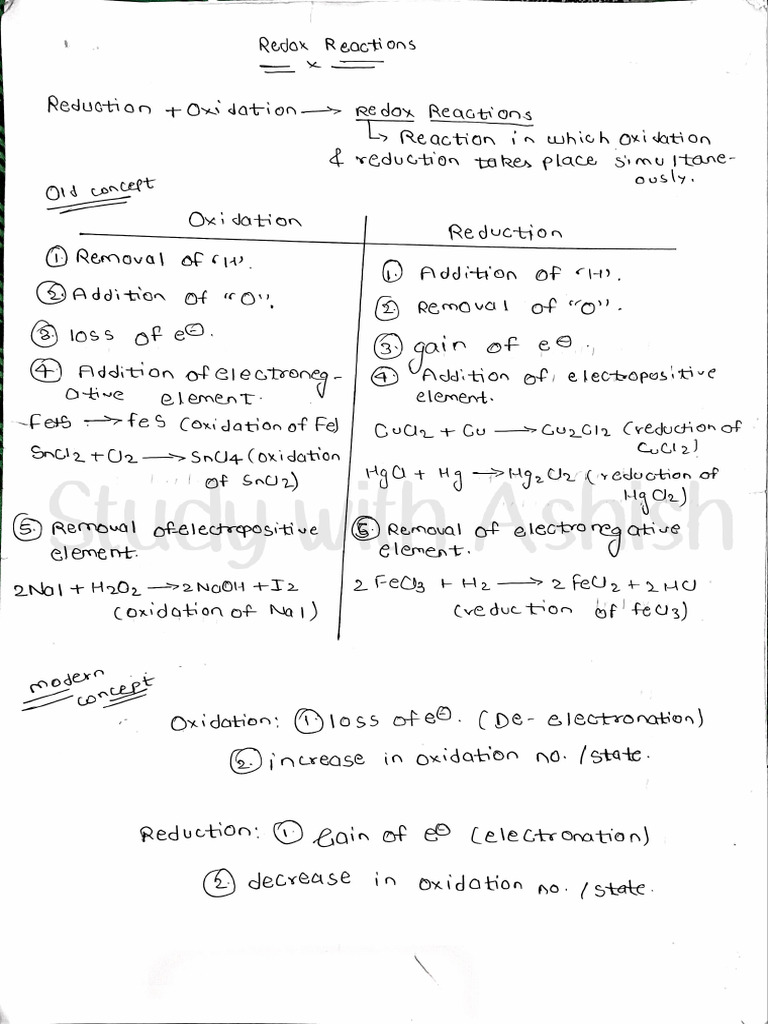 Redox Reactions
x
Reduction + Oxidation → Redox Reactions
↳ Reaction in which oxidation
& reduction takes place simultane-
ously.
Old concept
Oxidation
① Removal of "H".
② Addition of "O".
③ loss of e⊖.
④ Addition of electroneg-
ative element.
Fe+S → feS (oxidation of Fe)
SnCl2 + Cl2 → SnCl4 (oxidation
of SnCl2)
⑤ Removal of electropositive
element.
2NaI + H2O2 → 2NaOH + I2
(oxidation of NaI)
Reduction
① Addition of "H".
② Removal of "O".
③ gain of e⊖.
④ Addition of electropositive
element.
CuCl2 + Cu → Cu2Cl2 (reduction of
CuCl2)
HgCl + Hg → Hg2Cl2 (reduction of
HgCl2)
⑤ Removal of electronegative
element.
2 FeCl3 + H2 → 2 feCl2 + 2HCl
(reduction of feCl3)
Study with Ashish
modern
concept
Oxidation: ① loss of e⊖. (De-electronation)
② increase in oxidation no. / state.
Reduction: ① Gain of e⊖ (electronation)
② decrease in oxidation no. / state.